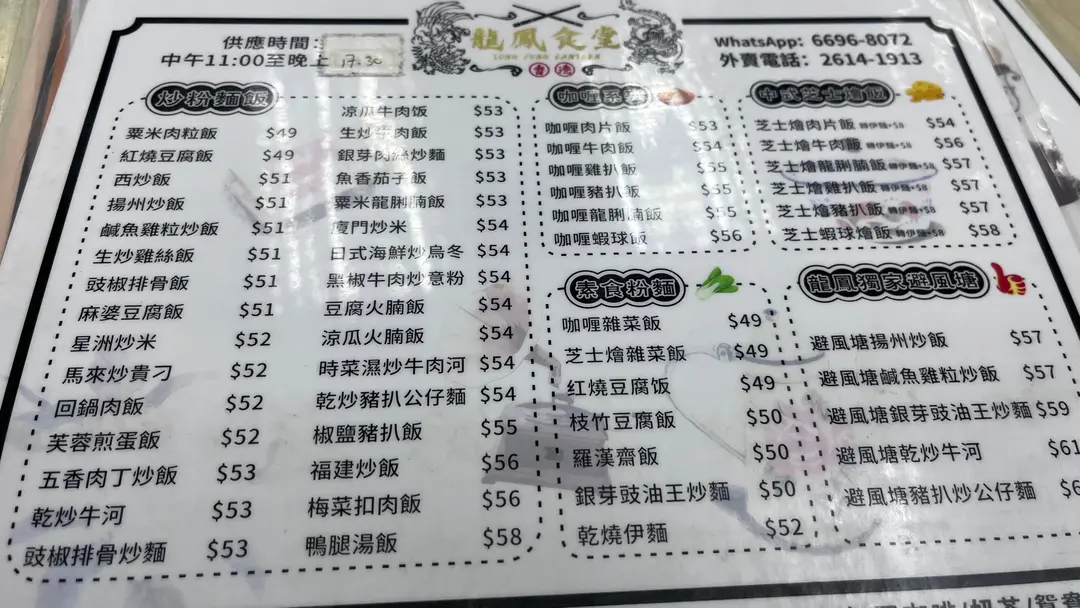 供應時間：
中午11:00至晚上 17:30
龍鳳食堂
LUNG FUNG CANTEEN
香港
WhatsApp: 6696-8072
外賣電話: 2614-1913
炒粉麵飯
粟米肉粒飯 $49
紅燒豆腐飯 $49
西炒飯 $51
揚州炒飯 $51
鹹魚雞粒炒飯 $51
生炒雞絲飯 $51
豉椒排骨飯 $51
麻婆豆腐飯 $51
星洲炒米 $52
馬來炒貴刁 $52
回鍋肉飯 $52
芙蓉煎蛋飯 $52
五香肉丁炒飯 $53
乾炒牛河 $53
豉椒排骨炒麵 $53
凉瓜牛肉饭 $53
生炒牛肉飯 $53
銀芽肉絲炒麵 $53
魚香茄子飯 $53
粟米龍脷腩飯 $53
廈門炒米 $54
日式海鮮炒烏冬 $54
黑椒牛肉炒意粉 $54
豆腐火腩飯 $54
涼瓜火腩飯 $54
時菜濕炒牛肉河 $54
乾炒豬扒公仔麵 $54
椒鹽豬扒飯 $55
福建炒飯 $56
梅菜扣肉飯 $56
鴨腿湯飯 $58
咖喱系列
咖喱肉片飯 $53
咖喱牛肉飯 $54
咖喱雞扒飯 $55
咖喱豬扒飯 $55
咖喱龍脷腩飯 $55
咖喱蝦球飯 $56
中式芝士燴飯
芝士燴肉片飯 轉伊麵+$8 $54
芝士燴牛肉飯 轉伊麵+$8 $56
芝士燴龍脷腩飯 轉伊麵+$8 $57
芝士燴雞扒飯 轉伊麵+$8 $57
芝士燴豬扒飯 轉伊麵+$8 $57
芝士蝦球燴飯 轉伊麵+$8 $58
素食粉麵
咖喱雜菜飯 $49
芝士燴雜菜飯 $49
红燒豆腐饭 $49
枝竹豆腐飯 $50
羅漢齋飯 $50
銀芽豉油王炒麵 $50
乾燒伊麵 $52
龍鳳獨家避風塘
避風塘揚州炒飯 $57
避風塘鹹魚雞粒炒飯 $57
避風塘銀芽豉油王炒麵 $59
避風塘乾炒牛河 $61
避風塘豬扒炒公仔麵